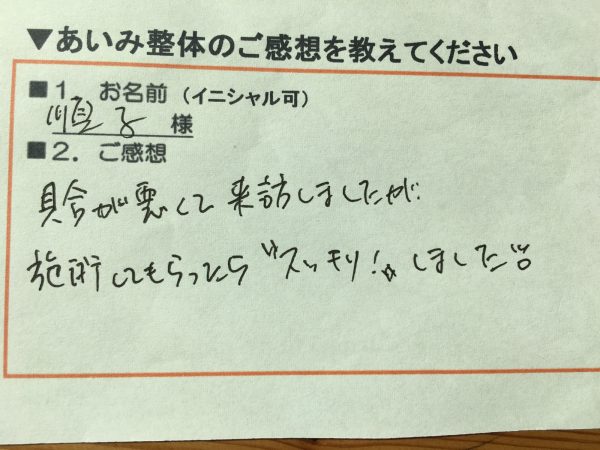 ▼あいみ整体のご感想を教えてください
■1. お名前（イニシャル可）
順子 様
■2. ご感想
具合が悪くて来訪しましたが
施術してもらったら〝スッキリ!☆しました〟